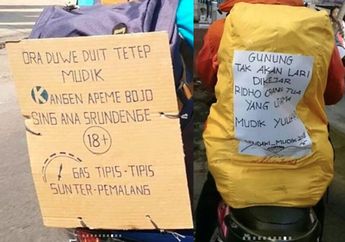 ORA DUWE DUIT TETEP
MUDIK
KANGEN APEME BOJO
SING ANA SRUNDENGE
18+
GAS TIPIS-TIPIS
SUNTER-PEMALANG
GUNUNG
TAK AKAN LARI
DIKEJAR
RIDHO ORANG TUA
YANG UTAMA
MUDIK YUUK